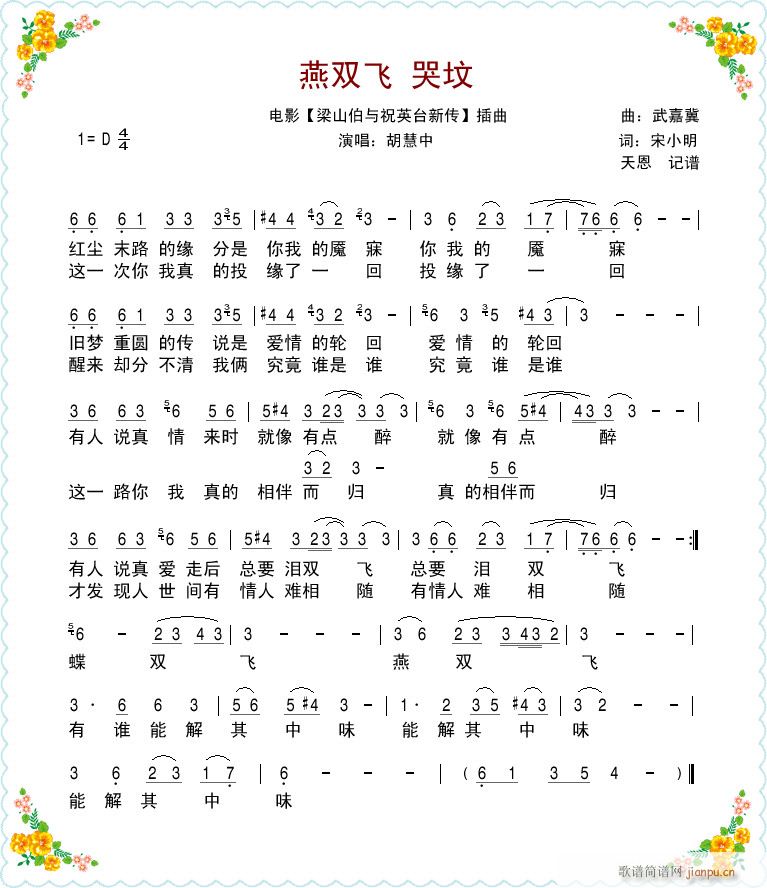 燕双飞 哭坟
电影【梁山伯与祝英台新传】插曲 曲：武嘉冀
1= D 4/4 演唱：胡慧中 词：宋小明
天恩 记谱
6 6 6 1 3 3 3 3 5 | #4 4 4 3 2 3 2 - | 3 6 2 3 1 7 | 7 6 6 6 - - |
红尘 末路 的缘 分是 你我 的魇 寐 你 我 的 魇 寐
这一 次你 我真 的投 缘了 一 回 投 缘 了 一 回
6 6 6 1 3 3 3 3 5 | #4 4 4 3 2 3 2 - | 5 6 3 3 5 #4 3 | 3 - - - |
旧梦 重圆 的传 说是 爱情 的轮 回 爱 情 的 轮回
醒来 却分 不清 我俩 究竟 谁是 谁 究 竟 谁 是谁
3 6 6 3 5 6 5 6 | 5 #4 3 2 3 3 3 3 | 5 6 3 5 6 5 #4 | 4 3 3 3 - |
有人 说真 情 来时 就像 有点 醉 就 像 有 点 醉
3 2 3 - 5 6
这一 路你 我 真的 相伴 而 归 真 的相伴而 归
3 6 6 3 5 6 5 6 | 5 #4 3 2 3 3 3 3 | 3 6 6 2 3 1 7 | 7 6 6 6 - :|
有人 说真 爱 走后 总要 泪双 飞 总要 泪 双 飞
才发 现人 世 间有 情人 难相 随 有情人 难 相 随
5 6 - 2 3 4 3 | 3 - - - | 3 6 2 3 3 4 3 2 | 3 - - - |
蝶 双 飞 燕 双 飞
3 · 6 6 3 | 5 6 5 #4 3 - | 1 · 2 3 5 #4 3 | 3 2 - - |
有 谁 能 解 其 中 味 能 解 其 中 味
3 6 2 3 1 7 | 6 - - - | ( 6 1 3 5 4 - ) |
能 解 其 中 味
歌谱简谱网 jianpu.cn